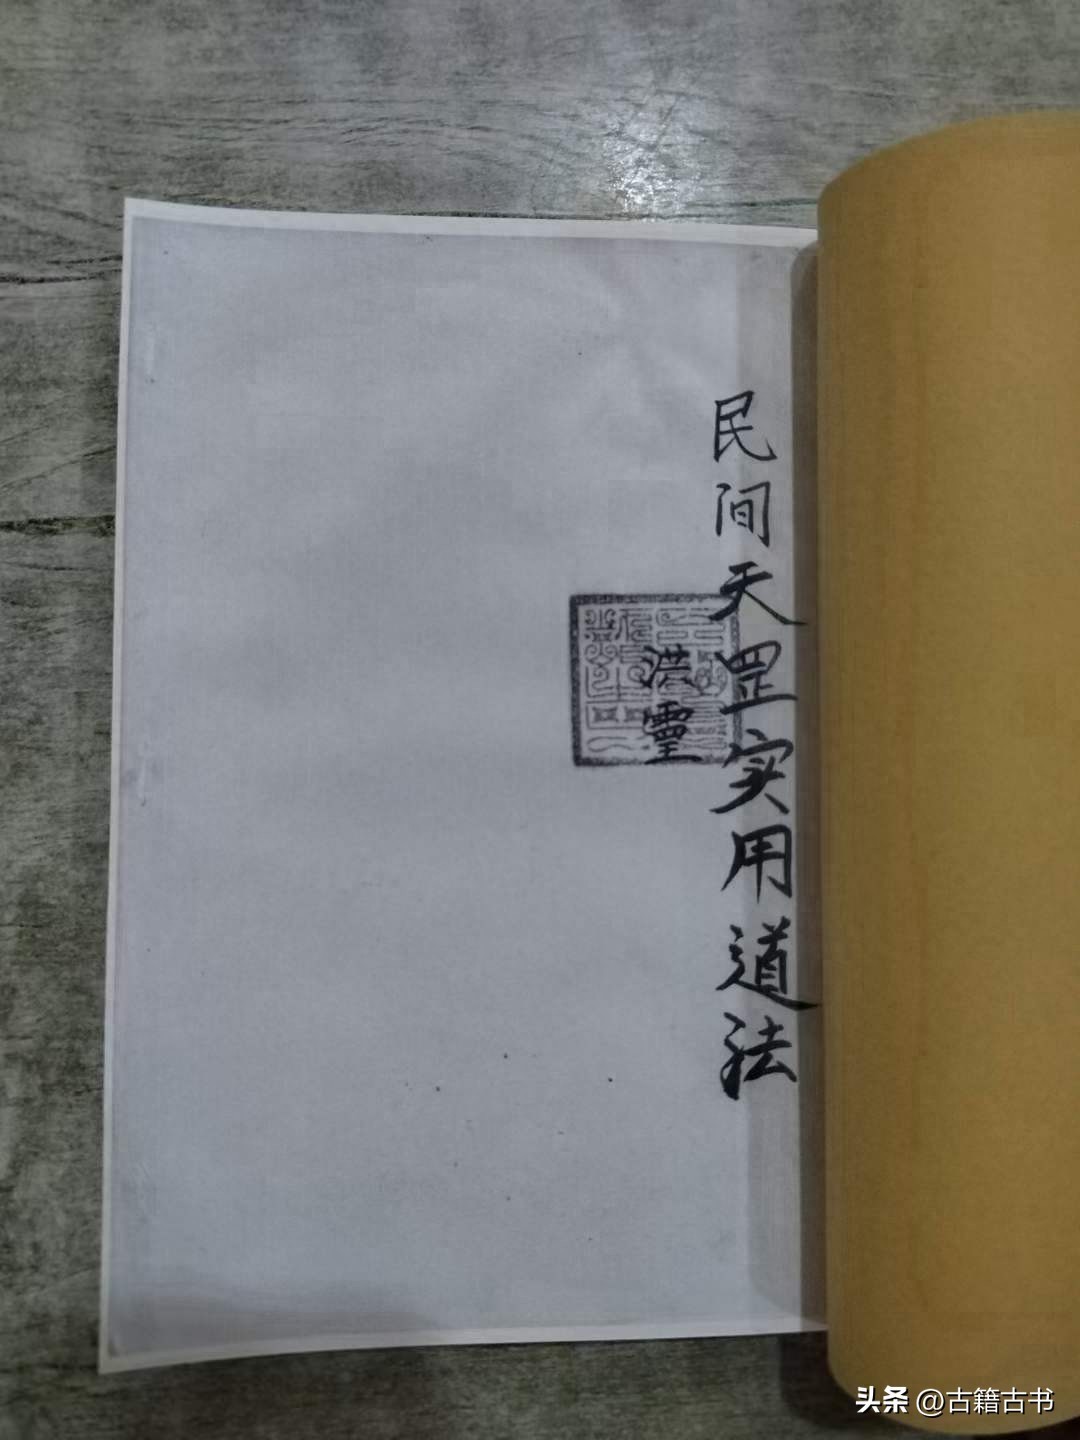 民间天罡实用道法
洪霊
头条 @古籍古书